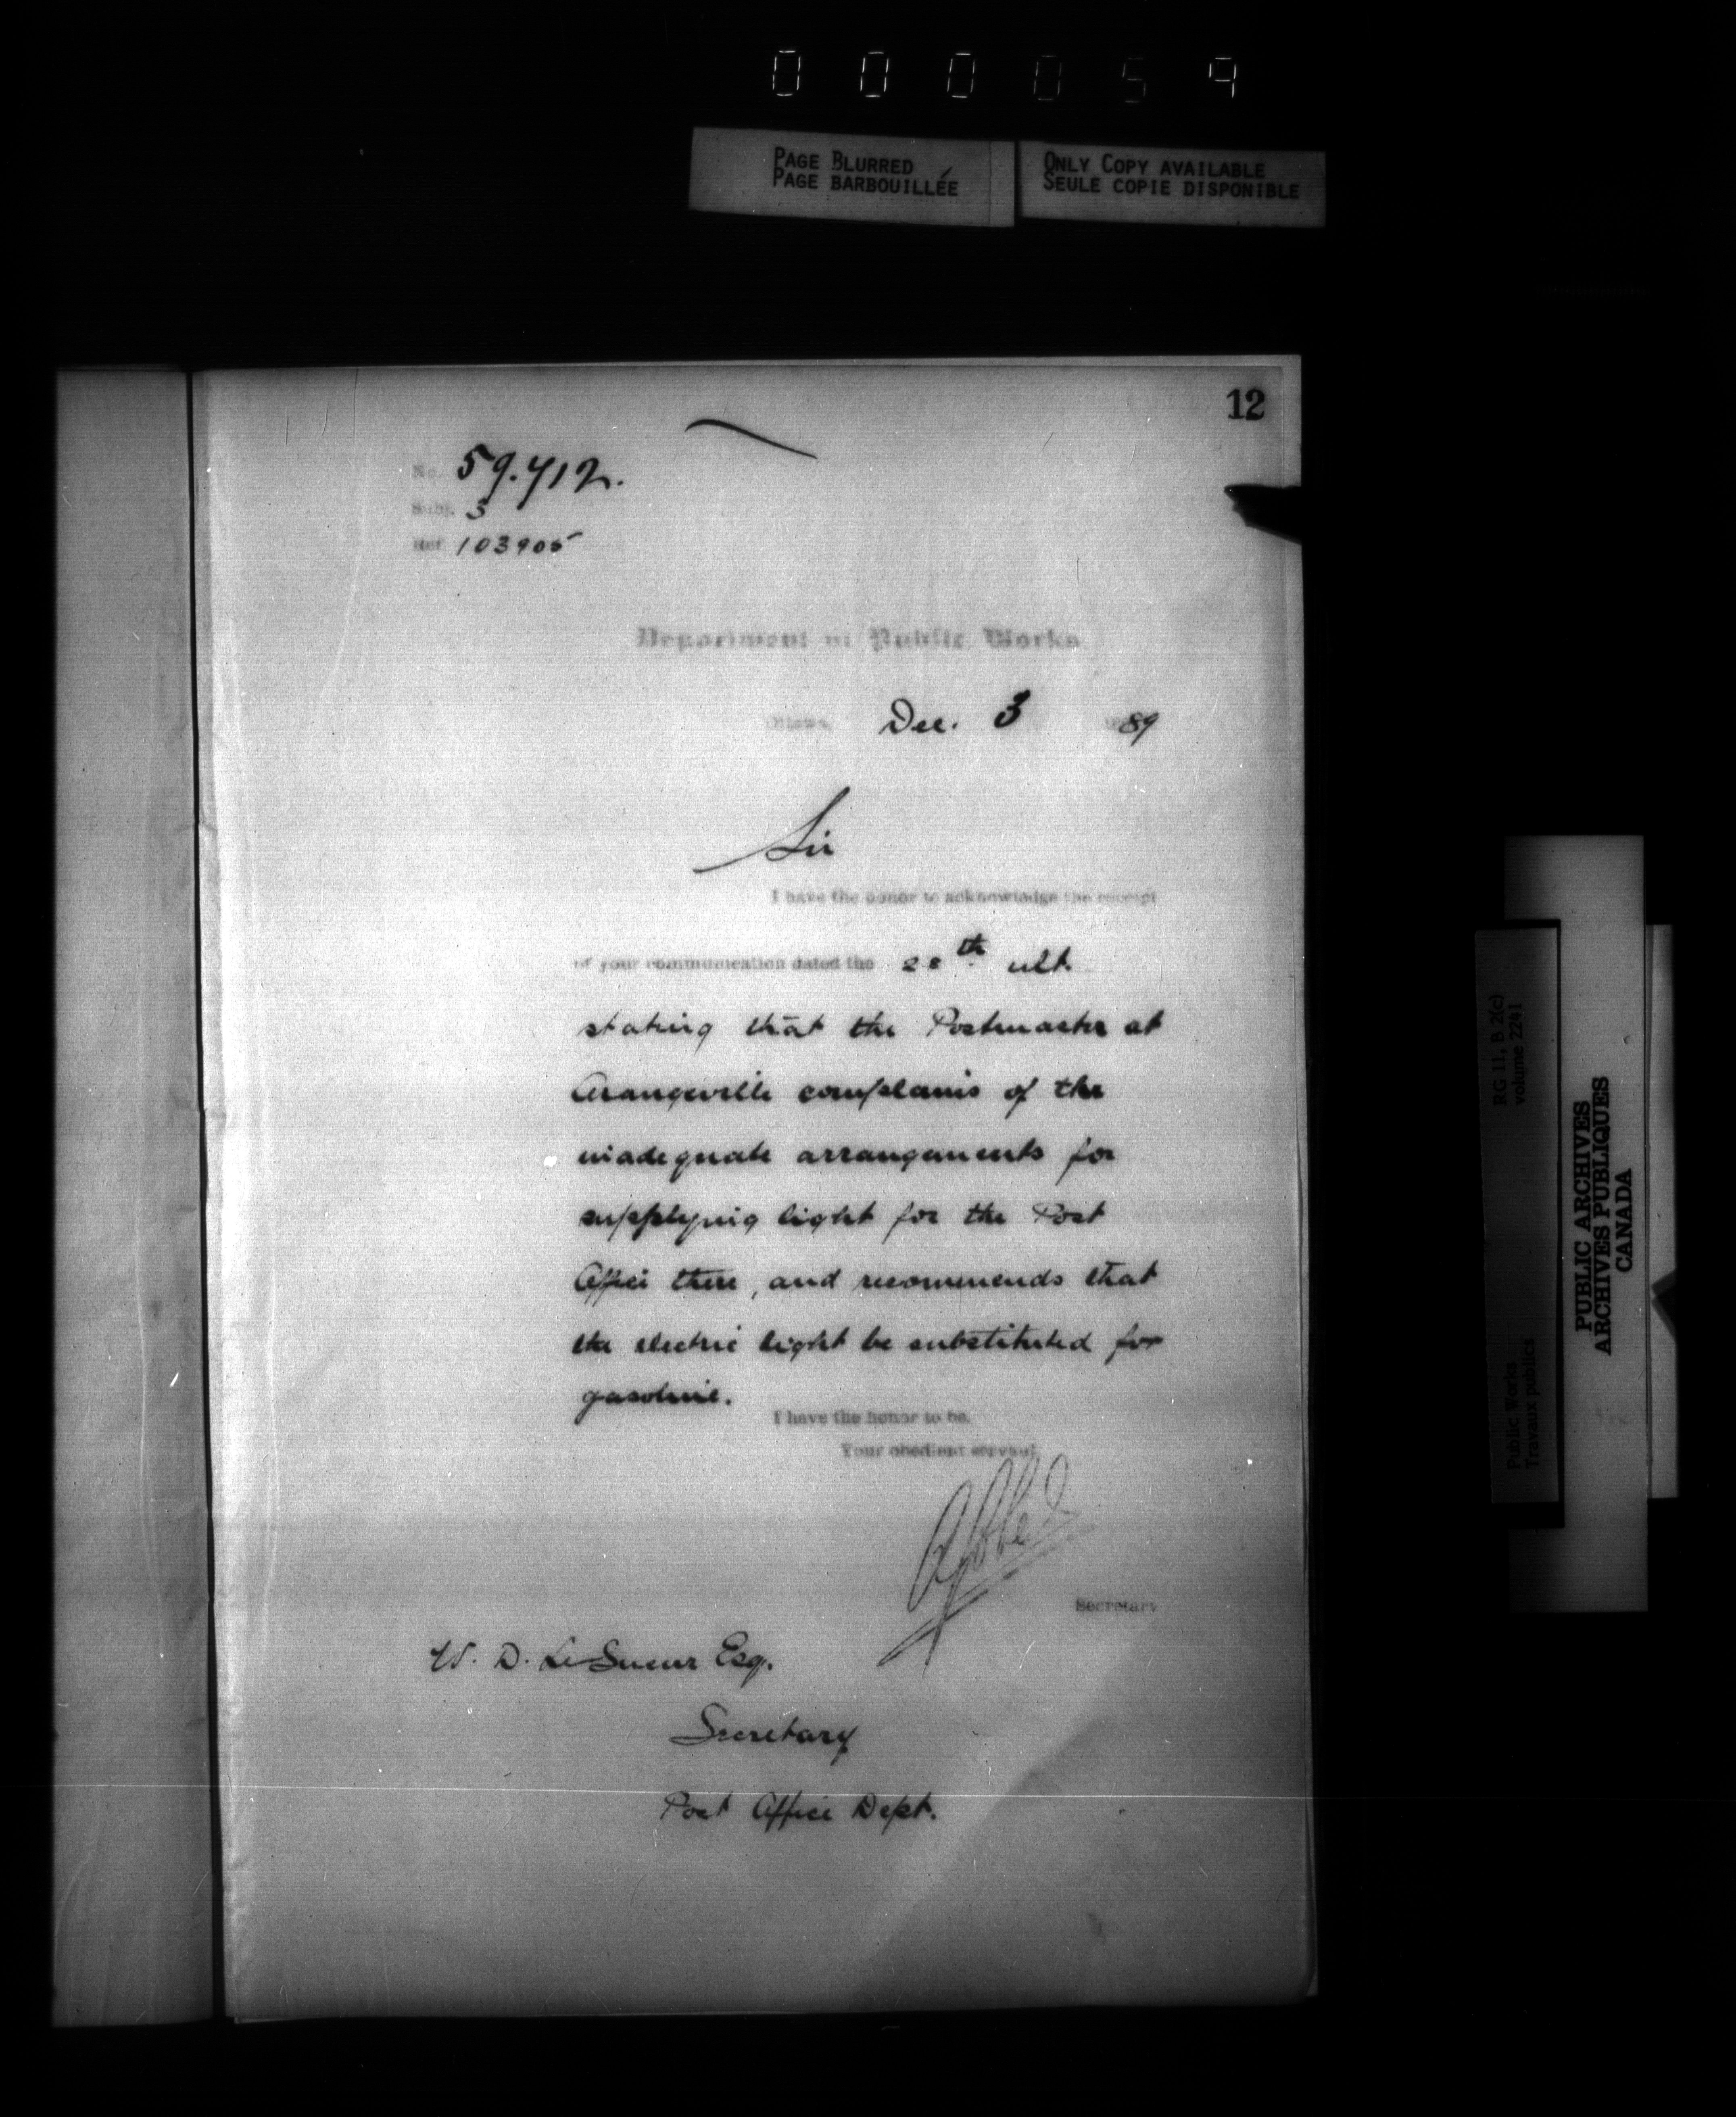 000059
PAGE BLURRED
PAGE BARBOUILLÉE
ONLY COPY AVAILABLE
SEULE COPIE DISPONIBLE
12
No. 59.712.
Subj. 3
Ref. 103905
Department of Public Works
Ottawa, Dec. 3 1889
Sir
I have the honor to acknowledge the receipt
of your communication dated the 28th ult.
stating that the Postmaster at
Orangeville complains of the
inadequate arrangements for
supplying light for the Post
Office there, and recommends that
the electric light be substituted for
gasoline.
I have the honor to be,
Your obedient servant
Secretary
W. D. LeSueur Esq.
Secretary
Post Office Dept.
RG 11, B 2(c)
volume 2241
Public Works
Travaux publics
PUBLIC ARCHIVES
ARCHIVES PUBLIQUES
CANADA